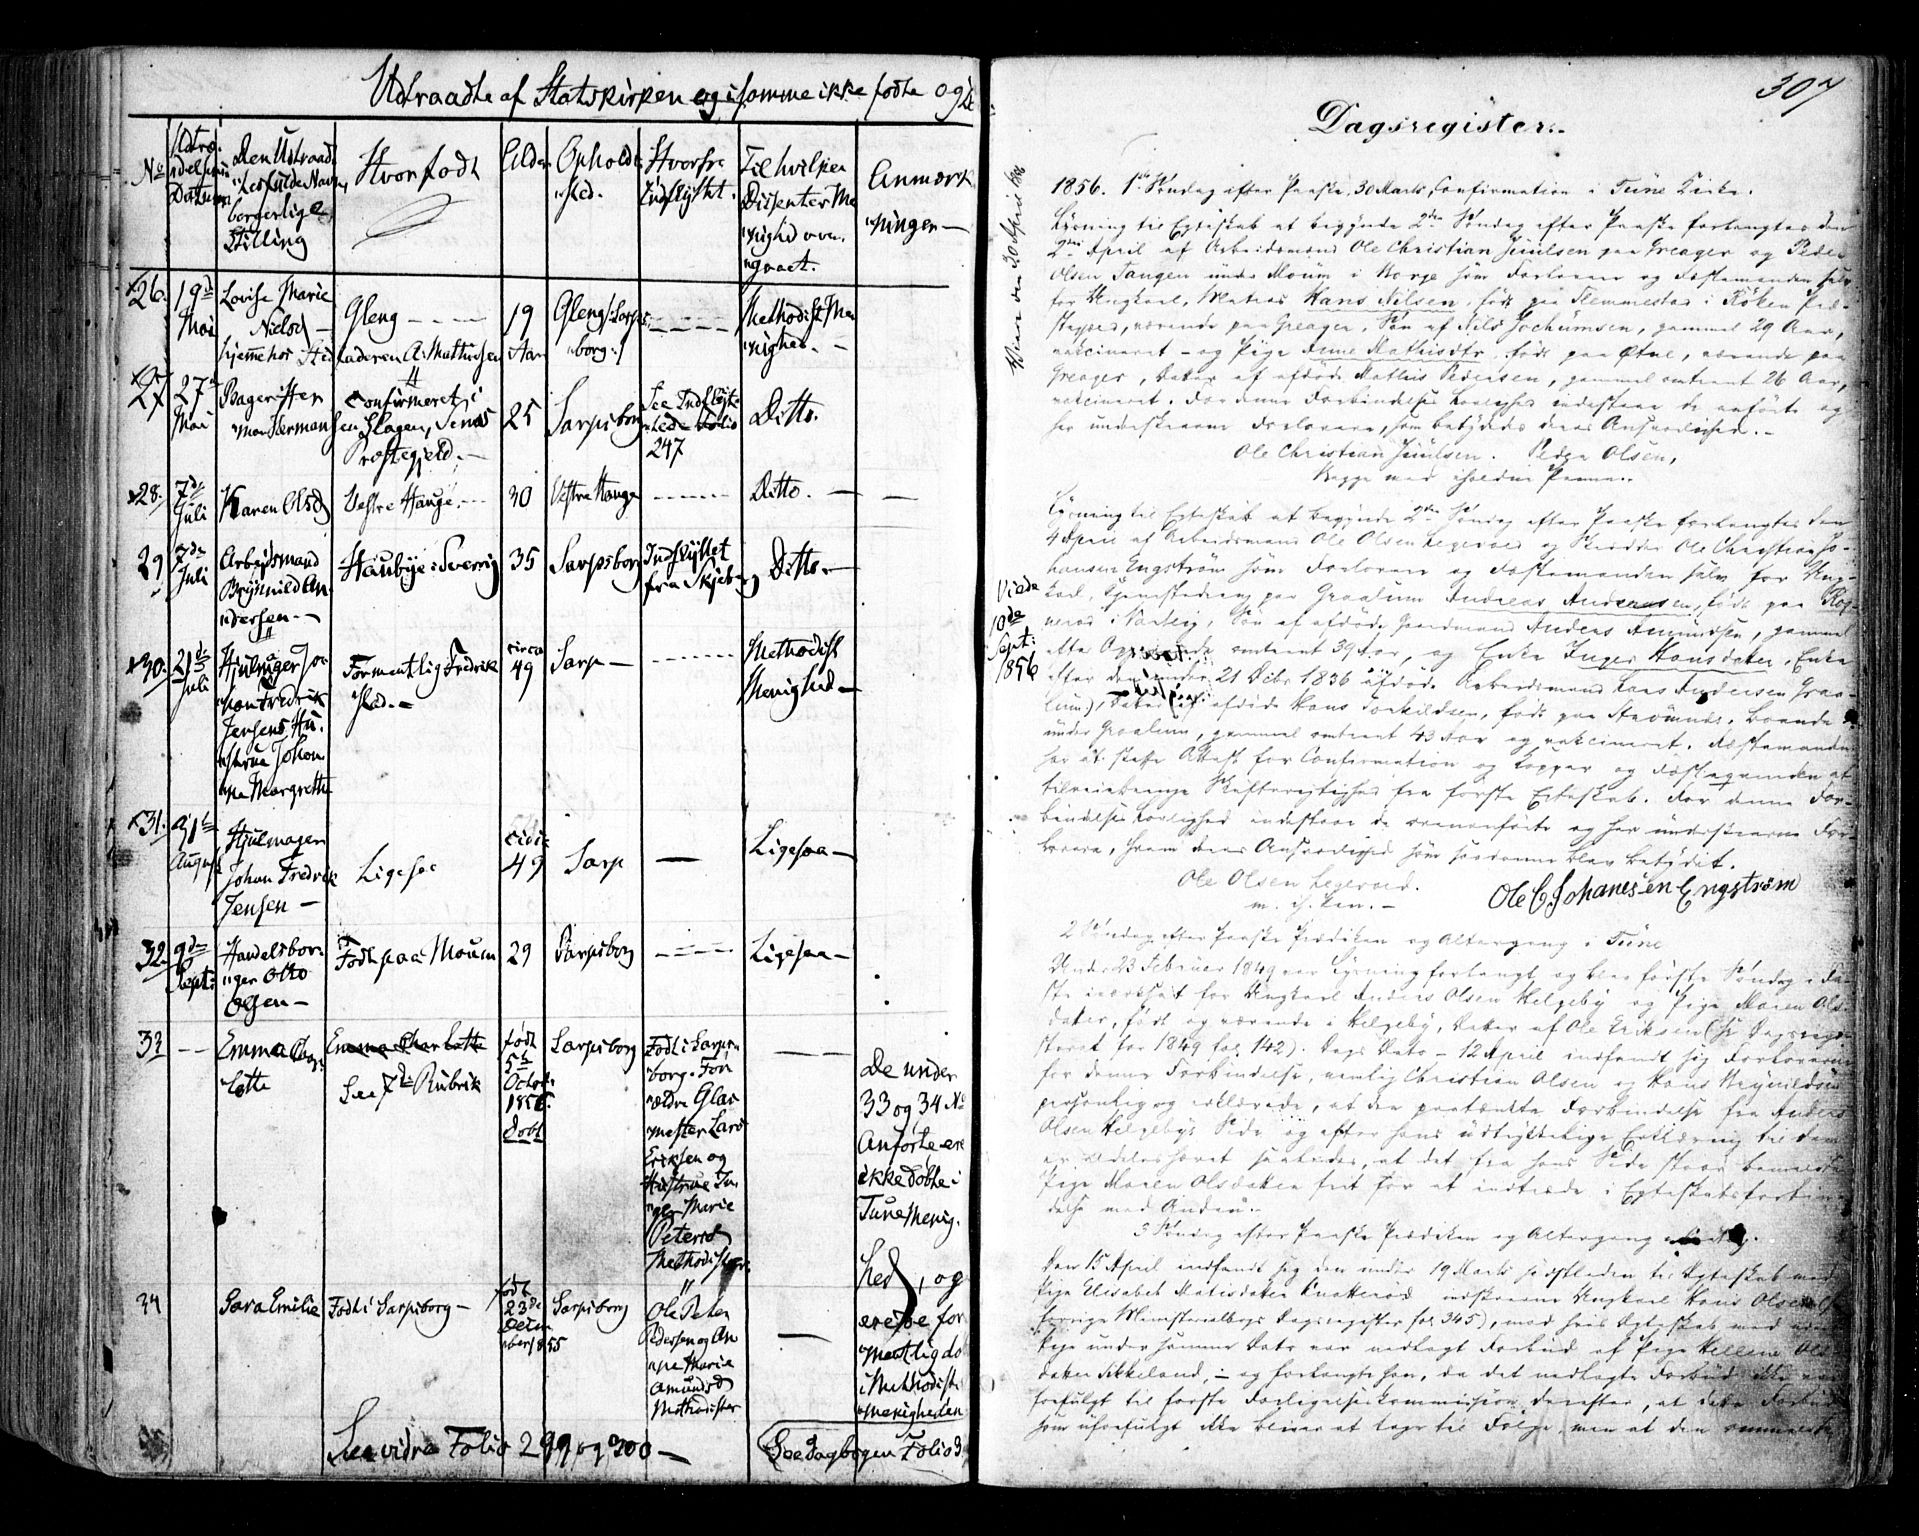 Udtraadte af Statskirken og i samme ikke fødte og
No
Udtræ-
delsens
Datum
Den Udtraad-
tes fulde Navn,
borgerlige
Stilling
Hvor født
Alder
Opholds-
sted.
Hvorfra
Indflyttet.
Til hvilken
Dissenter Me-
nighed over-
gaaet.
Anmærk-
ninger —
26. 19de Mai
Lovise Marie
Nielsd —
hjemme hos Stedfaderen A. Mathiesen
Gleng - - - -
19
Aar
Gleng /: Sarps-
borg :/
Methodist Me-
nighed. -
27 27de Mai
Bagersven
Hermansen
Confirmeret i
Slagen, Sems
Præstegjeld. —
25
Sarpsborg
See Indflytte-
Folio
247
Ditto.
28. 7de Juli
Karen Olsd
Vestre Hauge. - -
30
Vestre Hauge
Ditto. —
29 7de Juli
Arbeidsmand
Brynnild An-
dersen. —
Haubye i Sverrig
35
Sarpsborg
Indflyttet
fra Skjeberg
Ditto. —
30. 21de Juli
Hjulmager Jo-
han Fredrik
Jensens Hu-
strue Johan-
ne Margrethe
Formentlig Fredrik-
stad. —
circa
49
Sarp —
Methodist
Menighed —
31. 31te August
Hjulmager
Johan Fredrik
Jensen —
Ligesaa
49
Sarp
—
Ligesaa —
32. 9de Sept:
Handelsbor-
ger Otto
Olsen —
Født paa Moum
29
Sarpsborg
Ligesaa —
33 — —
Emma Char-
lotte
Emma Charlotte
See 7de Rubrik
født
5te
Octob.
1856.
døbt
Sarpsborg
Født i Sarps-
borg. For-
ældre Glas-
mester Lars
Eriksen og
Hustrue In-
ger Marie
Petersd
Methodister.
De under
33 og 34 No
Anførte ere
ikke døbte i
Tune Menig-
hed, og
ere for-
mentlig dø
i Methodist-
menigheden
34
Sara Emilie
Født i Sarpsborg —
født
23de
Decem-
ber 1855
Sarpsborg
Ole Peter
Pedersen og An-
ne Marie
Amundsd
Methodister
—
See vidre Folio 299 og 300 —
See Dagbogen Folio 3
307
Dagsregister.
1856. 1ste Søndag efter Paaske, 30 Marts, Confirmation i Tune Kirke.
Lysning til Egteskab at begynde 2den Søndag efter Paaske forlangtes den
2den April af Arbeidsmand Ole Christian Juulsen paa Greager og Peder
Olsen Tangen under Moum i Borge som Forlovere og Fæstemanden selv
for Ungkarl, Matros Hans Nilsen, født paa Flemmestad i Røken Præ-
stegjeld, værende paa Greager, Søn af Nils Jochumsen, gammel 29 Aar,
vaccineret — og Pige Anne Mathisdtr født paa Østne, værende paa
Greager, Datter af afdøde Mathis Pedersen, gammel omtrent 26 Aar,
vaccineret. For denne Forbindelses Lovlighed indestaae de anførte og
her underskrevne Forlovere, som betydedes deres Ansvarlighed. —
Ole Christian Juulsen. Peder Olsen,
Begge med iholden Penne.
Viede den 20 April 1856
Lysning til Egteskab at begynde 2den Søndag efter Paaske forlangtes den
4 April af Arbeidsmand Ole Olsen Legevold og Skrædder Ole Christian Jo-
hansen Engstrøm som Forlovere og Fæstemanden selv for Ung-
karl, Graalum Andreas Andersen, født paa
i Varteig, Søn af afdøde Gaardmand Anders Amundsen, gammel
efter Opgivende omtrent 39 Aar, og Enke Inger Hansdatter, Enke
efter den under 21 Decbr 1836 afdøde Arbeidsmand Lars Andersen Graa-
lum), Datter af afdøde Hans Torkildsen, født paa boende
under Graalum, gammel omtrent 43 Aar og vaccineret. Fæstemanden
har at skaffe Attest for Confirmation og Kopper og Fæsteqvinden at
tilveiebringe Skifterigtighed fra første Egteskab. For denne For-
bindelses Lovlighed indestaae de ovenanførte og her underskrevne For-
lovere, hvem deres Ansvarlighed som saadanne blev betydet.
Ole Olsen Legevold.
m. i. Pen. —
Ole C Johanesen Engstrøm
Viede
10de
Sept:
1856
2 Søndag efter Paaske Prædiken og Altergang i Tune
Under 23 Februar 1849 var Lysning forlangt, og blev første Søndag i Fa-
ste iværksat for Ungkarl Anders Olsen Helgeby og Pige Maren Ols-
datter, født og værende i Helgeby, Datter af Ole Eriksen (se Dagsregi-
steret for 1849 fol. 142). Dags Dato — 12 April indfandt sig Forloverne
for denne Forbindelse, nemlig Christian Olsen og Hans Brynildsen
personlig og erklærede, at den paatænkte Forbindelse fra Anders
Olsen Helgebys Side og efter hans udtrykkelige Erklæring til dem
er saaledes, at det fra hans Side staar bemeldte
Pige Maren Olsdatter frit for at indtræde i Egteskabsforbin-
delse med Anden. —
3 Søndag efter Paaske Prædiken og Altergang
Den 15 April indfandt sig den under 19 Marts sidstleden til Egteskab med
Pige Elisabet Matisdatter indskrevne Ungkarl Hans Olsen (se
forrige Ministerialbogs Dagsregister fol. 345), mod hvis Egteskab med
Pige under samme Dato var nedlagt Forbud af Pige Helene Ols-
datter Sikkeland, — og forlangte han, da det nedlagte Forbud ikke var
forfulgt til første Forligelseskommission derefter, at dette Forbud
som uforfulgt ikke bliver at tage til Følge, men at den ommeldte